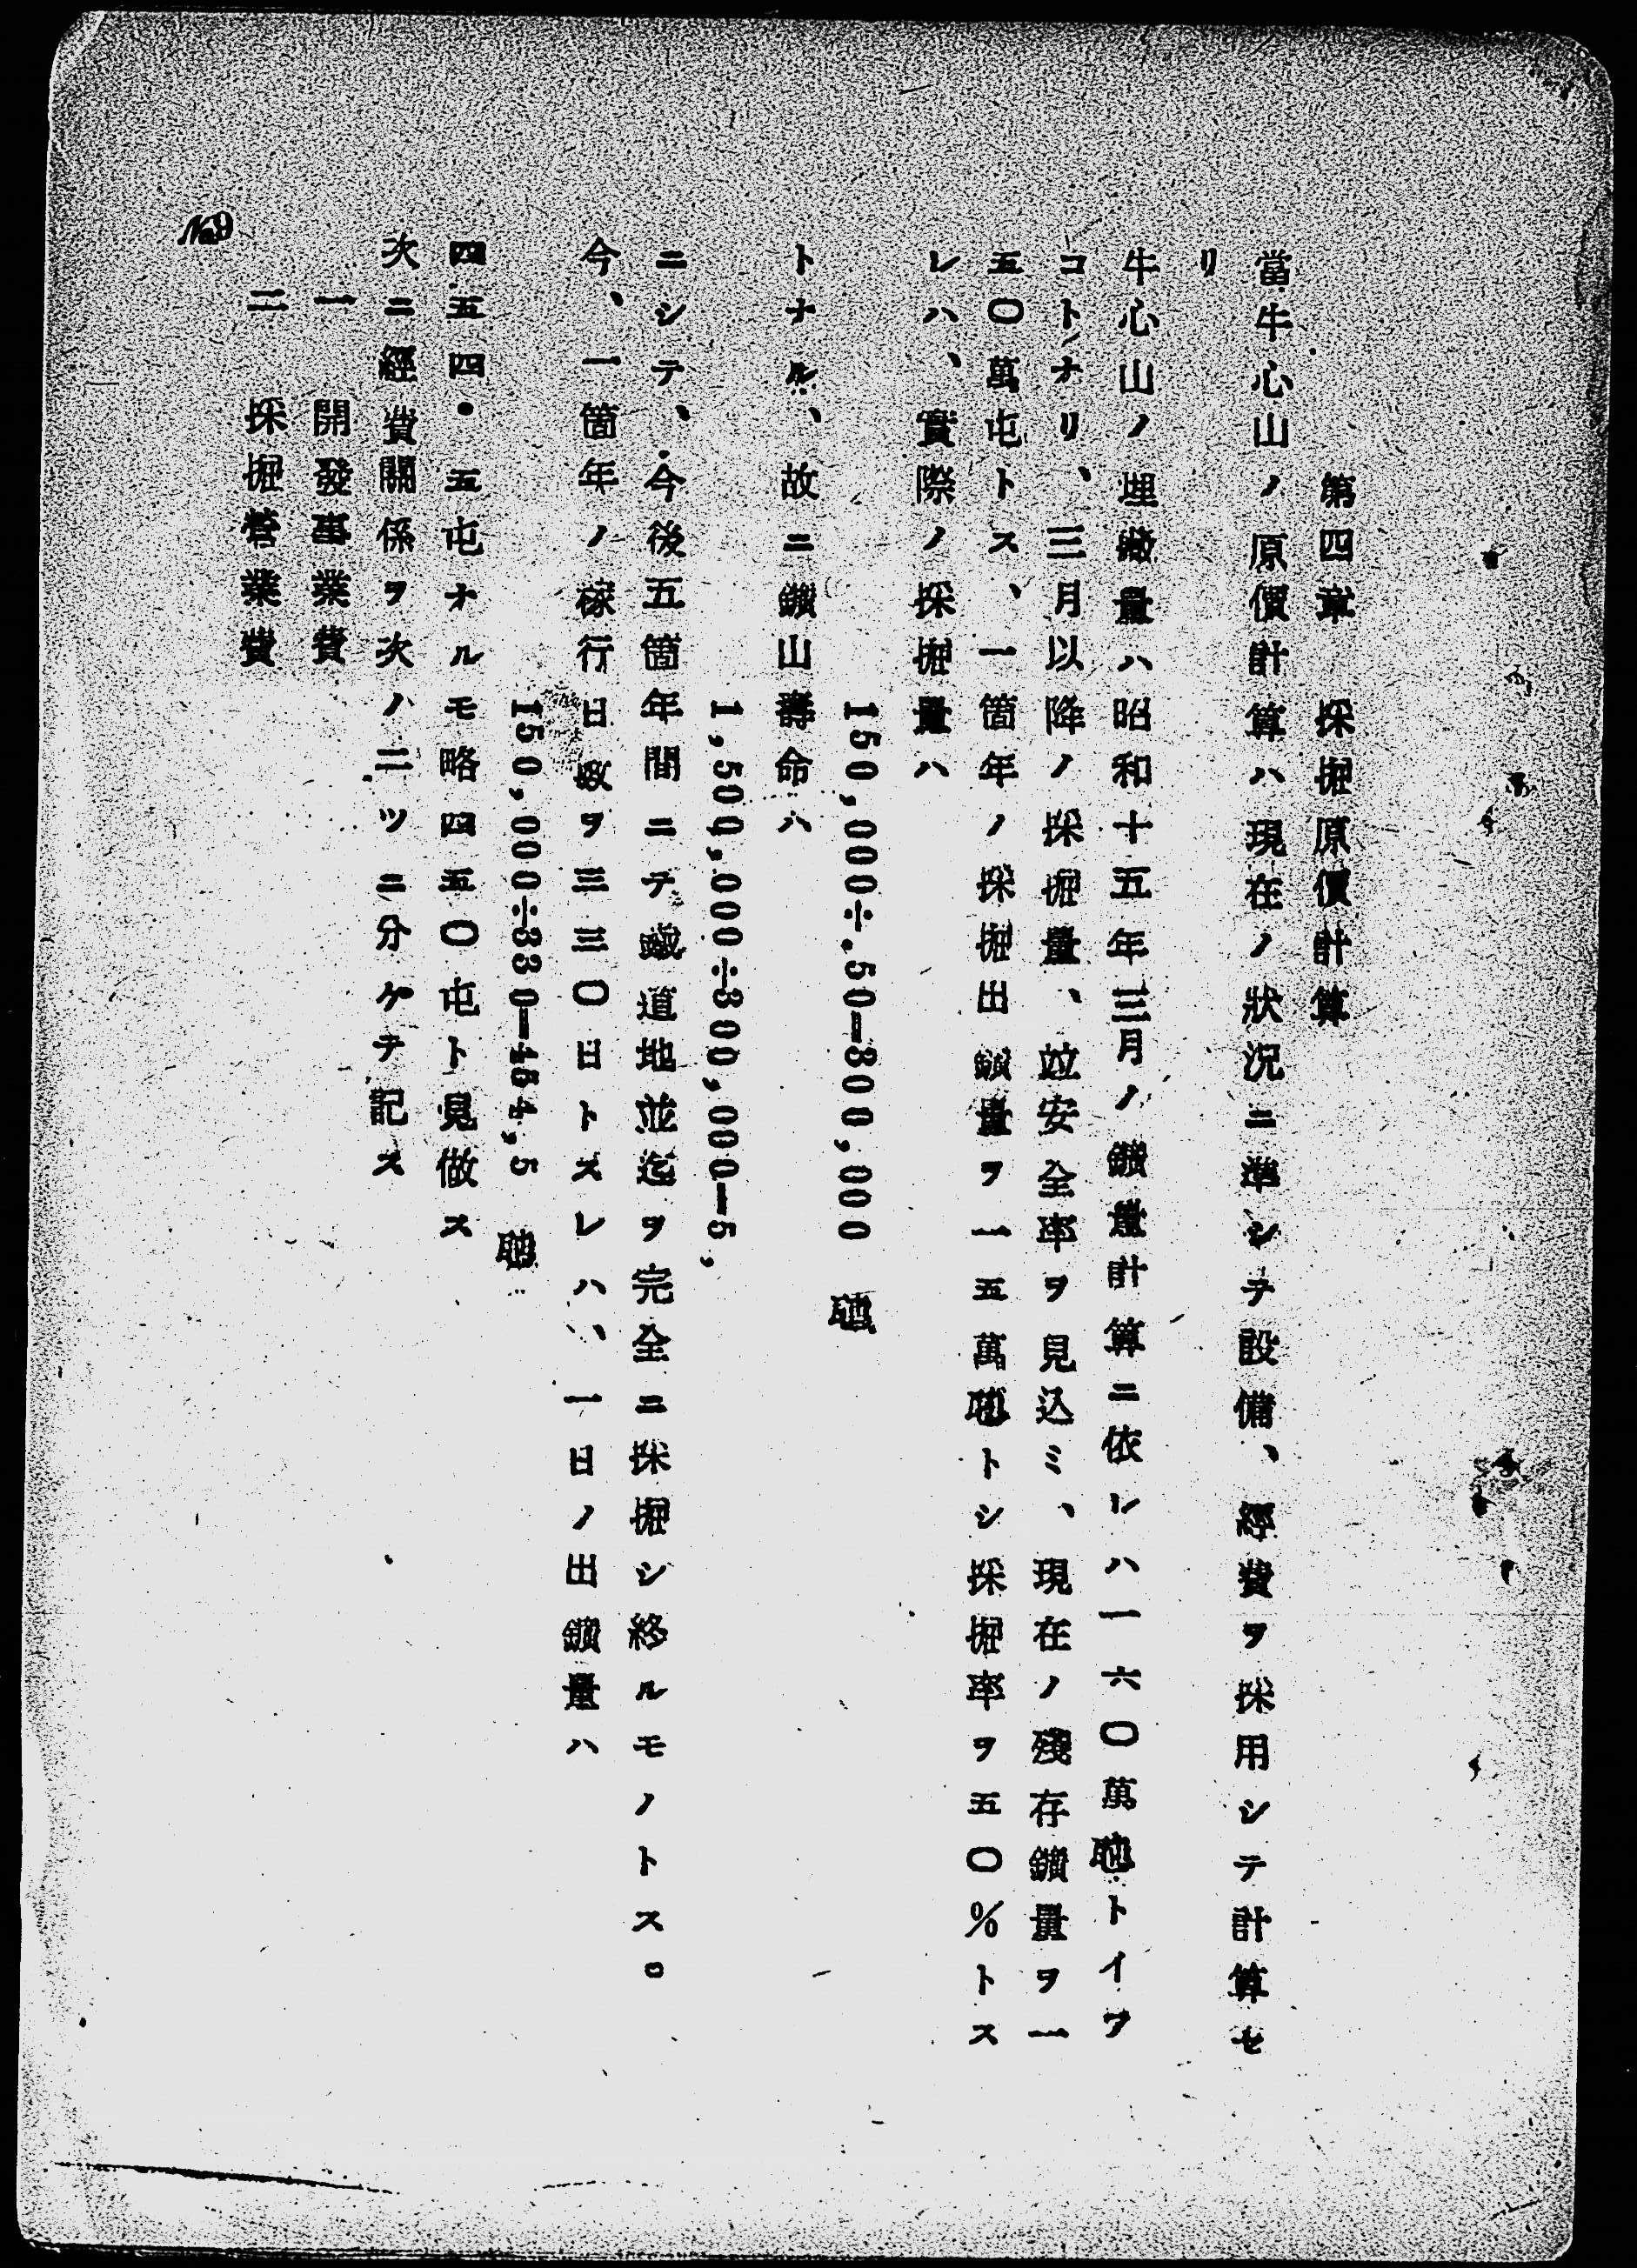 第四章 採掘原價計算
當牛心山ノ原價計算ハ現在ノ狀況ニ準シテ設備、經費ヲ採用シテ計算セ
リ
牛心山ノ埋藏量ハ昭和十五年三月ノ鑛量計算ニ依レハ一六〇萬瓲トイフ
コトナリ、三月以降ノ採掘量、竝安全率ヲ見込ミ、現在ノ殘存鑛量ヲ一
五〇萬屯トス、一箇年ノ採掘出鑛量ヲ一五萬瓲トシ採掘率ヲ五〇%トス
レハ、實際ノ採掘量ハ
150,000÷.50=300,000 瓲
トナル、故ニ鑛山壽命ハ
1,500,000÷300,000=5,
ニシテ、今後五箇年間ニテ鐵道地並迄ヲ完全ニ採掘シ終ルモノトス。
今、一箇年ノ稼行日數ヲ三三〇日トスレハ、一日ノ出鑛量ハ
150,000÷330=454,5 瓲
四五四・五屯ナルモ略四五〇屯ト見做ス
次ニ經費關係ヲ次ノ二ツニ分ケテ記ス
一 開發事業費
二 採掘營業費
No.9